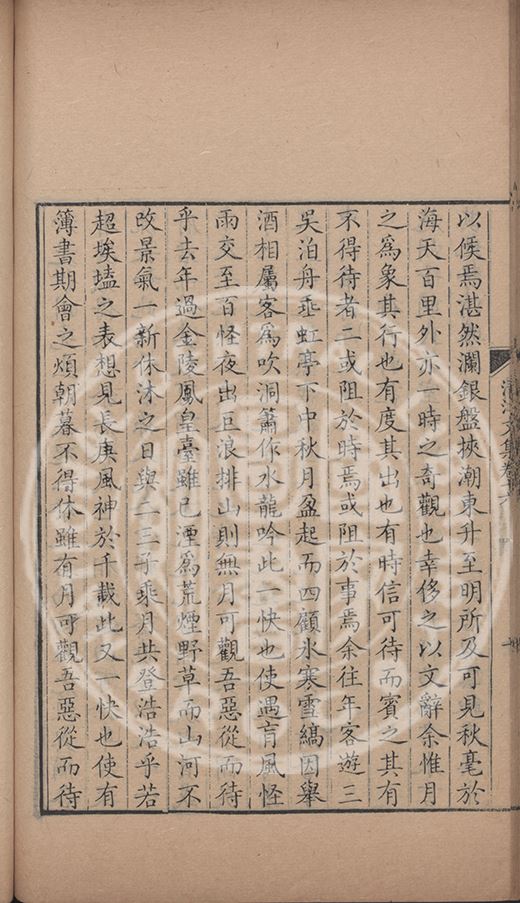 以候焉湛然瀾銀盤挾潮東升至明所及可見秋毫於
海天百里外亦一時之奇觀也幸侈之以文辭余惟月
之爲象其行也有度其出也有時信可待而賓之其有
不得待者二或阻於時焉或阻於事焉余往年客遊三
吳泊舟垂虹亭下中秋月盈起而四顧氷寒雪縞因舉
酒相屬客爲吹洞簫作水龍吟此一快也使遇盲風怪
雨交至百怪夜出巨浪排山則無月可觀吾惡從而待
乎去年過金陵鳳皇臺雖已湮爲荒煙野草而山河不
改景氣一新休沐之日與二三子乘月共登浩浩乎若
超埃壒之表想見長庚風神於千載此又一快也使有
簿書期會之煩朝暮不得休雖有月可觀吾惡從而待
文集卷六